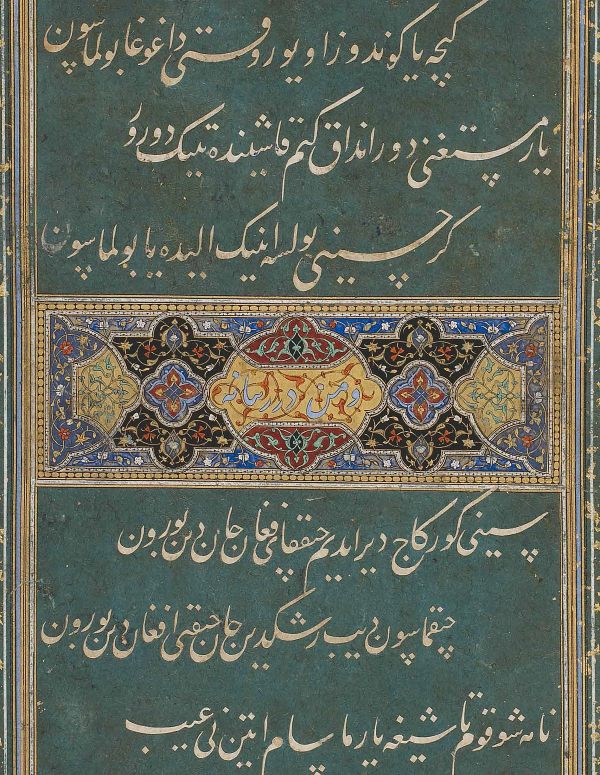 کیچه یا کوندوز اویور وقتی دا غوغا بولماسون
یار مستغنی دور انداق کیم قاشینده تینک دورور
کر حسینی بولسه انینک الیده یا بولماسون
ومن درر بیانه
سینی کورکاج دیر ایدیم چیققای فغان جان دین بورون
چیقماسون دیب رشکدین جان چیقتی افغان دین بورون
نامه شوقوم تاشیغه یازماسام اتین نی عیب